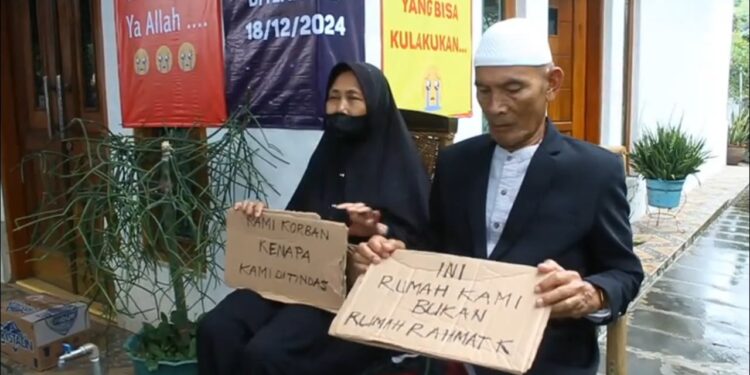 Ya Allah ....
18/12/2024
YANG BISA
KULAKUKAN...
KAMI KORBAN
KENAPA
KAMI DITINDAS
INI
RUMAH KAMI
BUKAN
RUMAH RAHMAT K